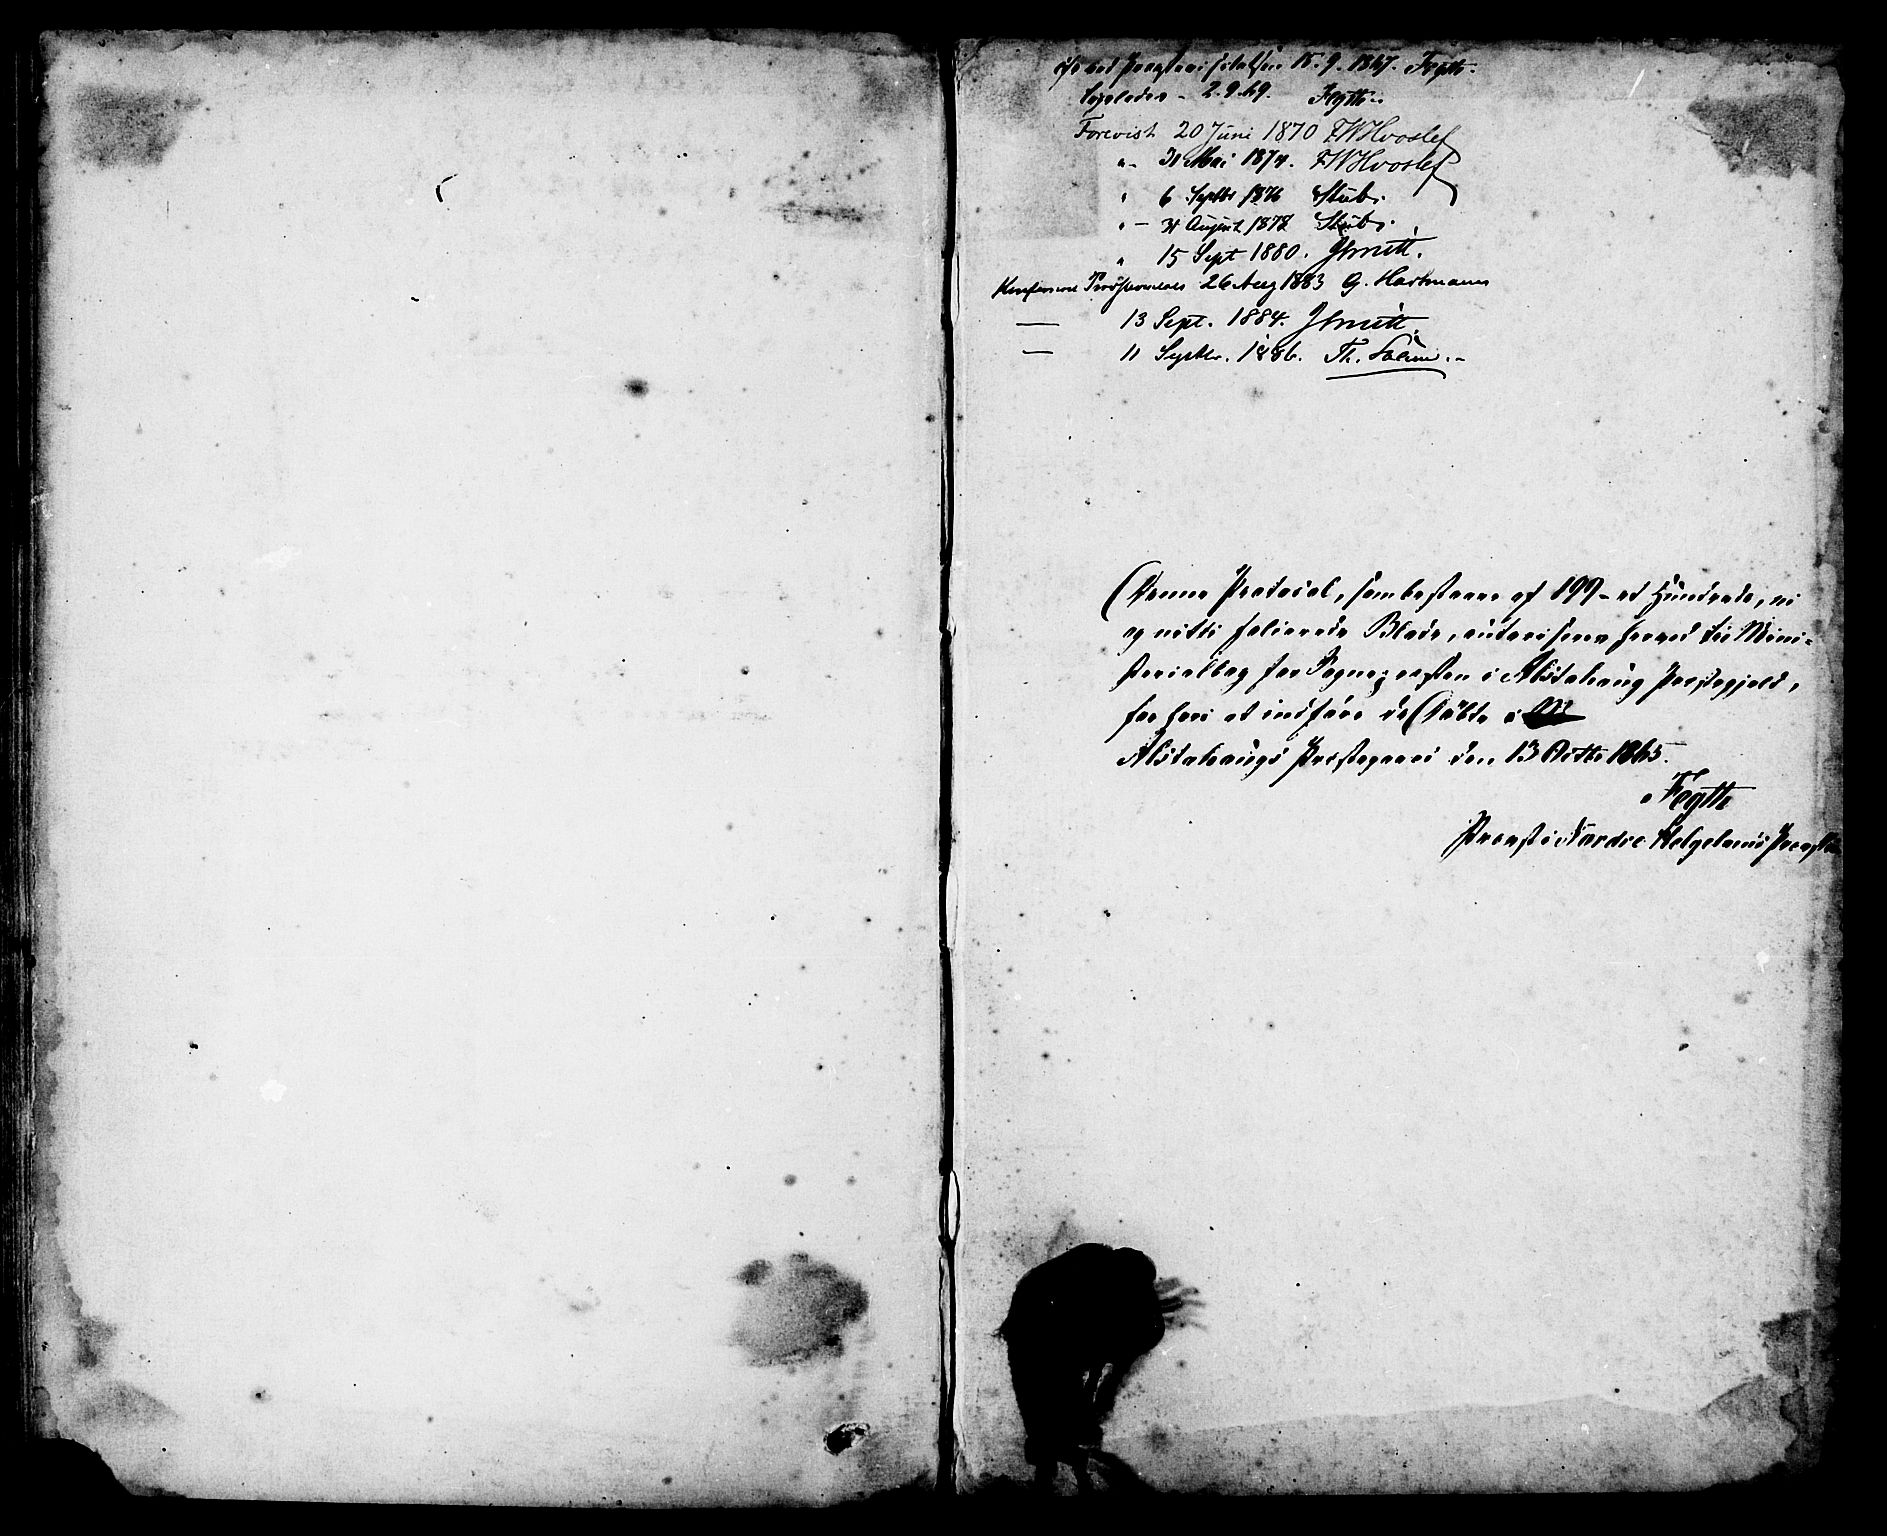 ved 15.9.1867. Fegth.
Ligeledes - 2.9.69. Fegth.
Forevist 20 Juni 1870 FWHvoslef
"- 31 Mai 1874. FWHvoslef
" 6 Septbr 1876 Stub.
" - 31 August 1878 Stub.
" 15 Sept 1880. JSmitt.
26 Aug 1883 G. Hartmann
— 13 Sept. 1884. JSmitt.
— 11 Septbr. 1886. Th.
Denne Protocol, som bestaaer af 199 - et Hundrede, ni
og nitti folierede Blade, autoriseres herved til Mini-
sterialbog for Sognepresten i Alstahaug Prestegjeld,
for heri at indføre de Døbte i
Alstahaugs Prestegaard den 13 Octbr 1865.
Fegth
Provst i Nordre Helgelands Provsti